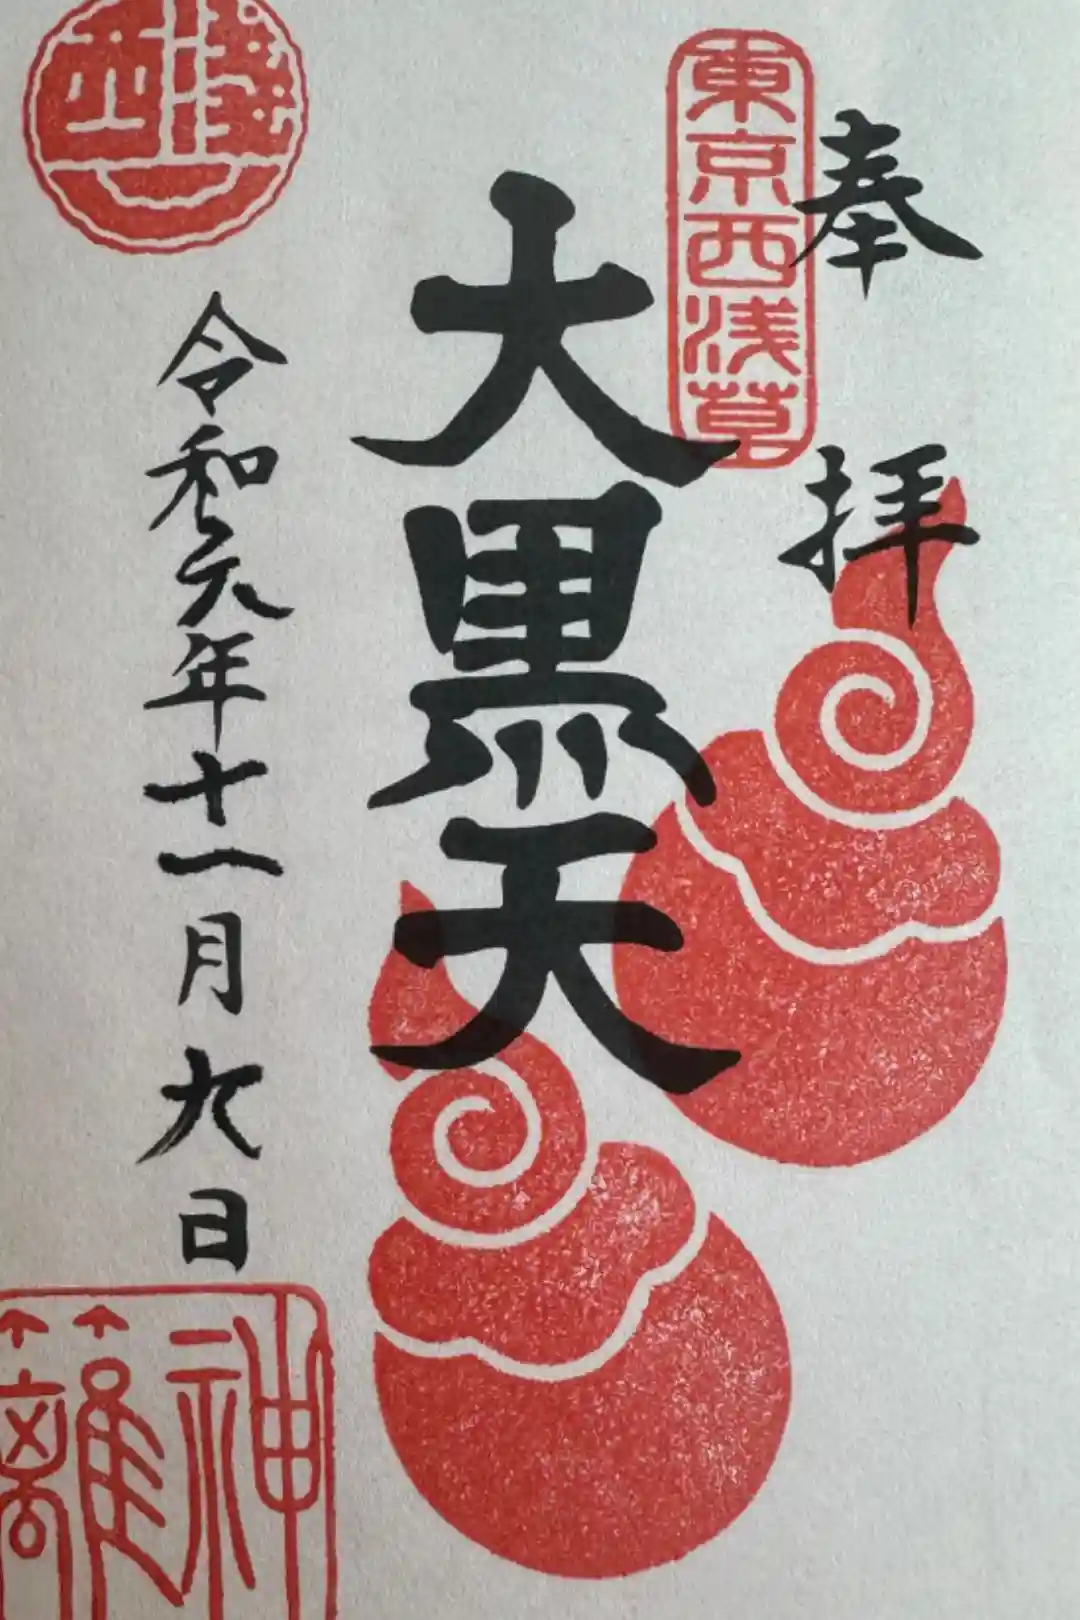 奉拝
東京西浅草
大黒天
令和元年十一月九日